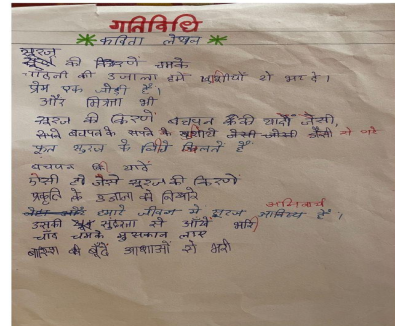 गतिविधि
* कविता लेखन *
सूरज
की किरणें चमके
चाँदनी की उजाला हमें खुशीयों से भर दे।
प्रेम एक जोड़ी है।
और मित्रता भी
सूरज की किरणें बचपन की यादों जैसी,
बचपन के सपने के खुशीयों जैसी
फूल सूरज के लिये खिलते हैं
बचपन की यादें
ऐसी है जैसे सूरज की किरणें
प्रकृति के उजाला को निखारे
हमारे जीवन में सूरज अनिवार्य है।
उसकी सुंदरता से आँखें भरी
चाँद चमके मुस्कान लाए
बारिश की बूँदें आशाओं से भरी